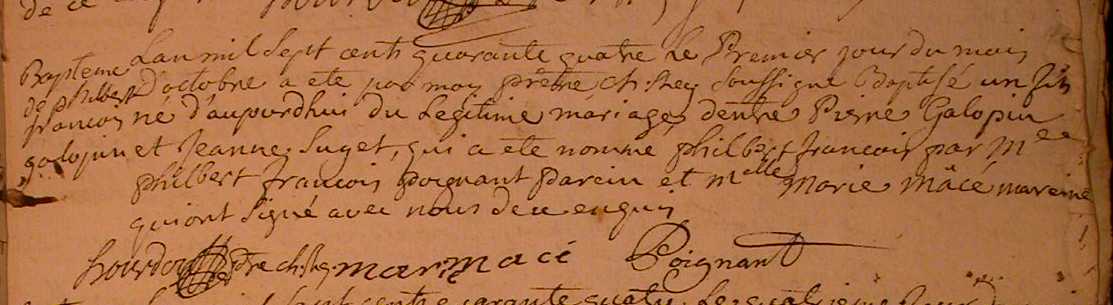 de ce
Bapteme Lan mil Sept cent quarante quatre Le Premier jour du mois
de philbert d'octobre a eté par moy prêtre Soussigné Baptisé un fils
francois né d'aujourdhui du Legitime mariage dentre Pierre Galopin
galopin et Jeanne Suget, qui a eté nommé philbert francois par Mee
philbert francois poignant Parein et Melle Marie Mâcé mareine
qui ont Signé avec nous de ce enquis
marie macé Poignant